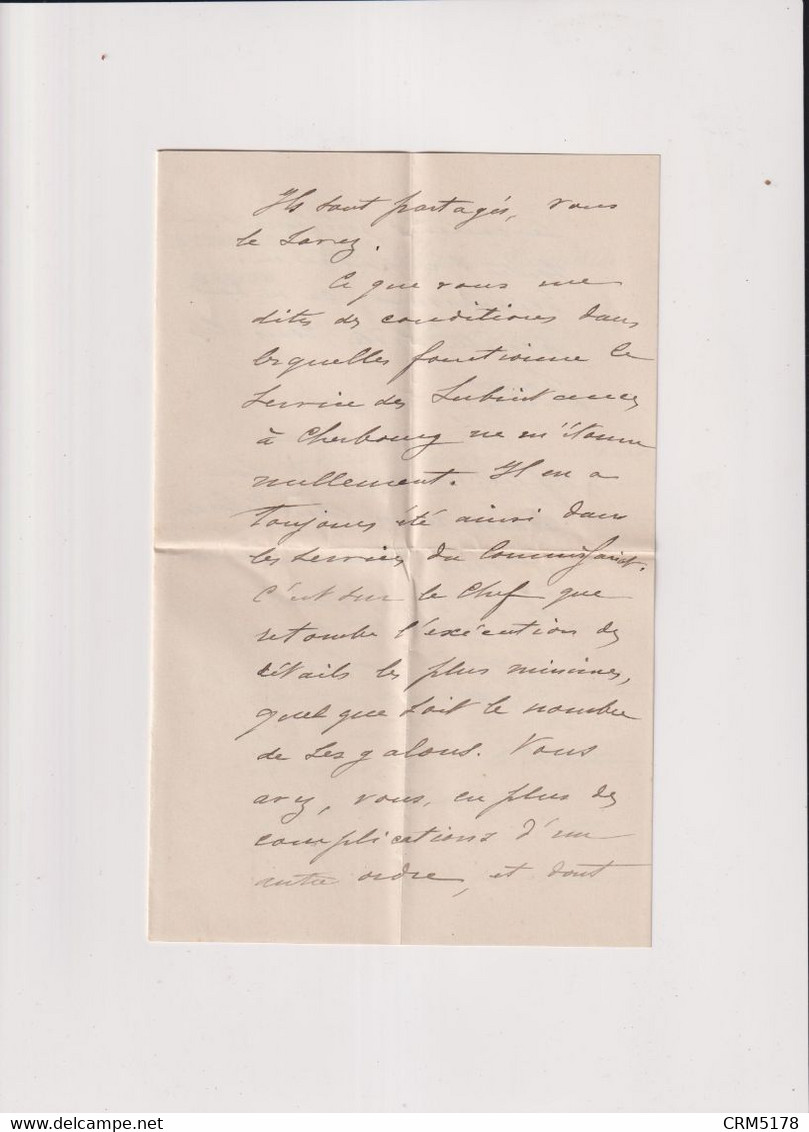 Ils sont partagés, vous
le savez.
Ce que vous me
dites des conditions dans
lesquelles fonctionne le
service des Subsistances
à Cherbourg ne m'étonne
nullement. Il en a
toujours été ainsi dans
les services du Commissariat.
C'est sur le Chef que
retombe l'exécution des
détails les plus minimes,
quel que soit le nombre
de ses galons. Vous
avez, vous, en plus des
complications d'un
autre ordre, et dont
delcampe.net
CRM5178